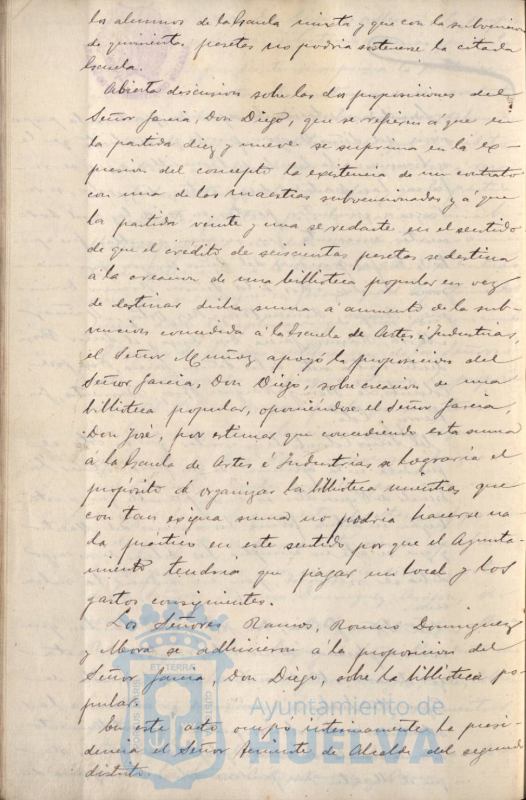 los alumnos de la Escuela mixta y que con la subvencion
de quinientas pesetas no podria sostenerse la citada
Escuela.
Abierta discusion sobre las dos proposiciones del
Señor Garcia, Don Diego, que se refieren á que en
la partida diez y nueve se suprima en la ex-
presion del concepto la existencia de un contrato
con una de las maestras subvencionadas y á que
la partida veinte y una se redacte en el sentido
de que el crédito de seiscientas pesetas se destina
á la creacion de una biblioteca popular en vez
de destinar dicha suma á aumento de la sub-
vencion concedida á la Escuela de Artes é Industrias,
el Señor Muñoz apoyó la proposicion del
Señor Garcia, Don Diego, sobre creacion de una
biblioteca popular, oponiéndose el Señor Garcia,
Don José, por estimar que concediendo esta suma
á la Escuela de Artes é Industrias se lograria el
propósito de organizar la biblioteca mientras que
con tan exigua suma no podria hacerse na-
da práctico en este sentido por que el Ayunta-
miento tendria que pagar un local y los
gastos consiguientes.
Los Señores Ramos, Romero Dominguez
y Mora se adhirieron á la proposicion del
Señor Garcia, Don Diego, sobre la biblioteca po-
pular.
En este acto ocupó interinamente la presi-
dencia el Señor Teniente de Alcalde del segundo
distrito.
ET TERRÆ
Ayuntamiento de
HUELVA